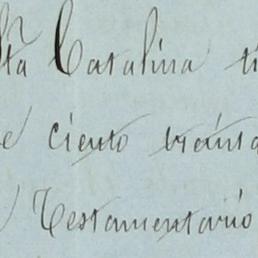 Sta Catalina ti
e ciento treinta
Testamentario